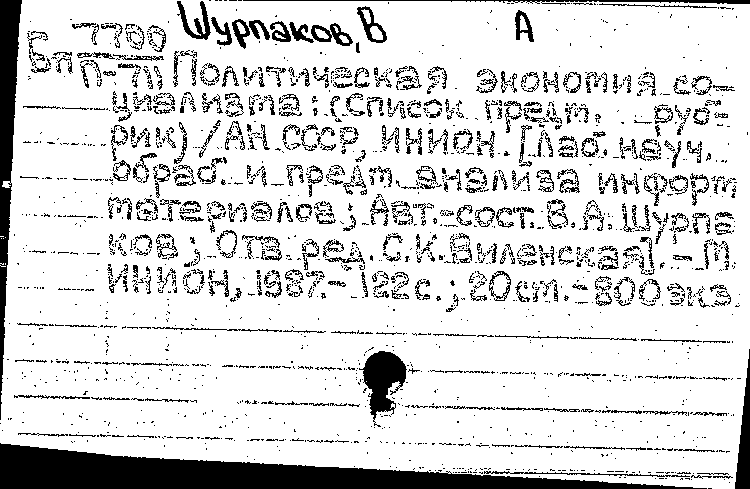 Шурпаков, В А
7700
Бп П-711 Политическая экономия со-
циализма: (Список предм. руб-
рик) / АН СССР, ИНИОН. [Лаб. науч.
обраб. и предм. анализа информ
материалов; Авт.-сост. В.А. Шурпа
ков; Отв ред. С.К. Виленская]. - М.
ИНИОН, 1987. - 122 с.; 20 см. - 800 экз.